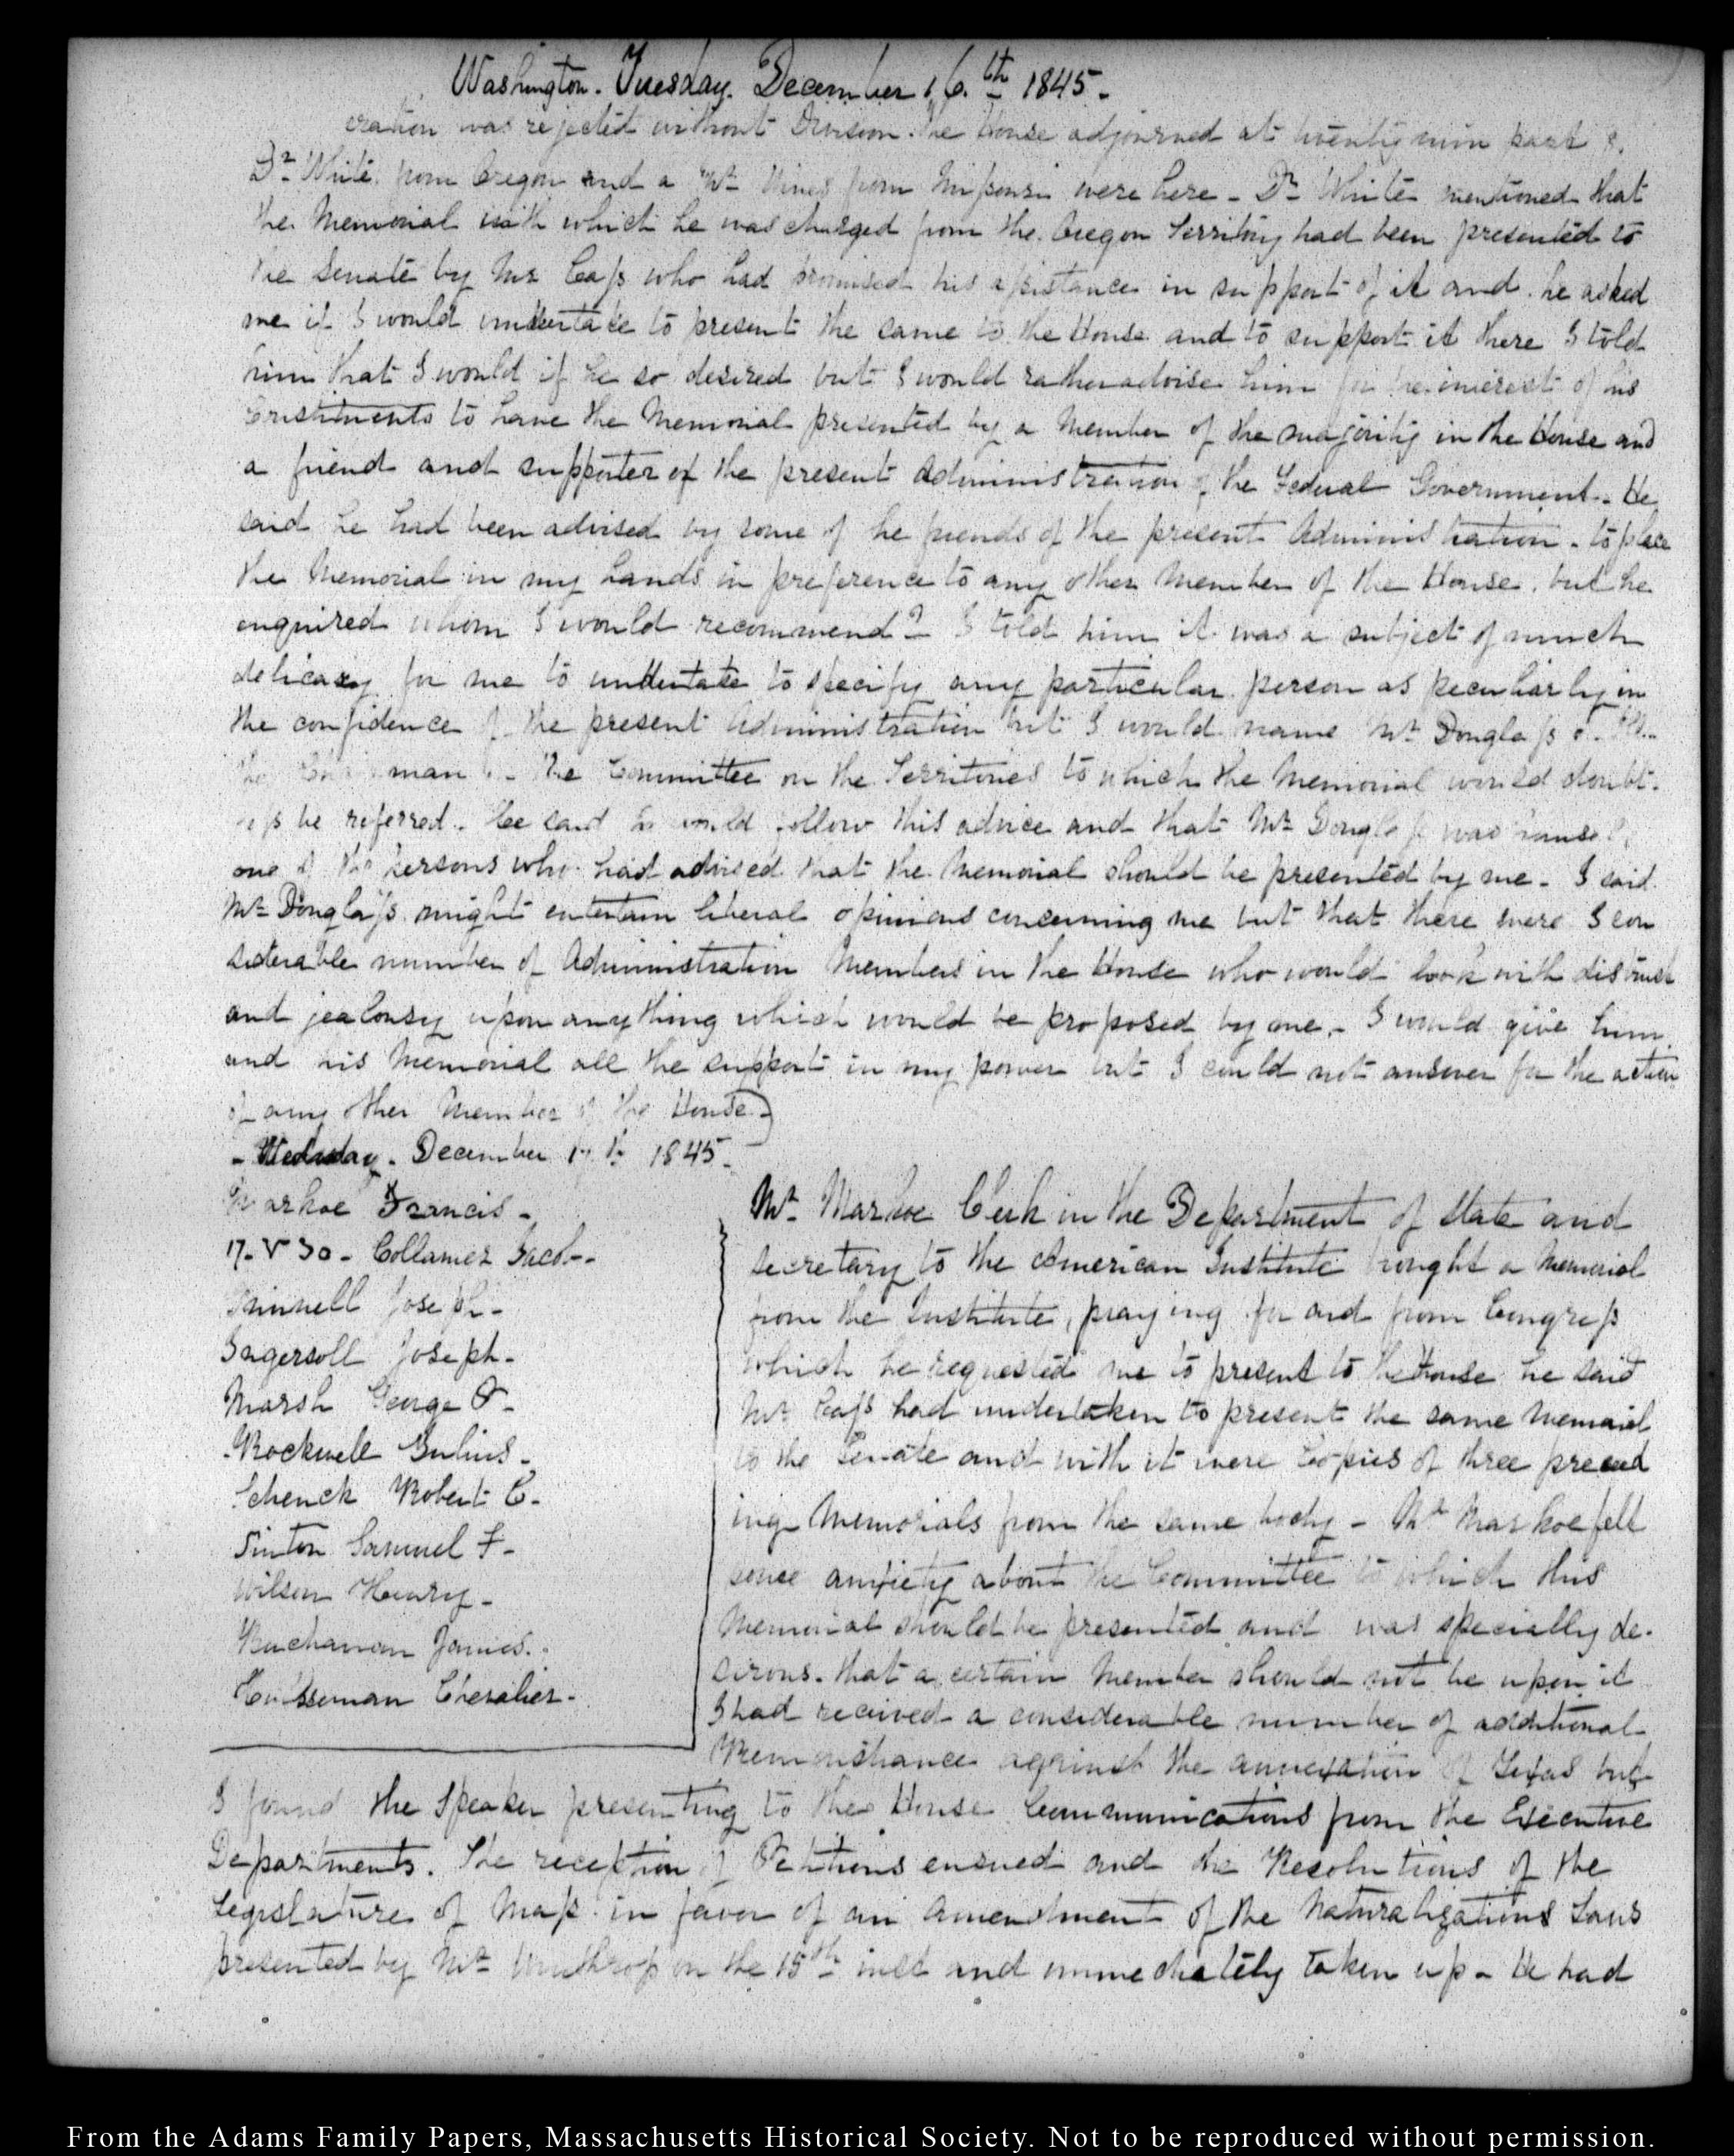 Washington. Tuesday. December 16.th 1845.
eration was rejected without Division. The House adjourned at twenty min past 3.
Dr. White from Oregon and a Mr. Hines from Missouri were here - Dr. White mentioned that
the Memorial with which he was charged from the Oregon Territory had been presented to
the Senate by Mr Cass who had promised his assistance in support of it and he asked
me if I would undertake to present the same to the House and to support it there I told
him that I would if he so desired but I would rather advise him for the interest of his
Constituents to have the Memorial presented by a Member of the majority in the House and
a friend and supporter of the present Administration of the Federal Government. He
said he had been advised by some of he friends of the present Administration - to place
the Memorial in my hands in preference to any other Member of the House. but he
enquired whom I would recommend? - I told him it was a subject of much
delicacy for me to undertake to specify any particular person as peculiarly in
the confidence of the present Administration but I would name Mr Douglass
the Chairman The Committee on the Territories to which the Memorial would doubt-
less be referred. He said he would follow this advice and that Mr Douglass was himself
one of the persons who had advised that the Memorial should be presented by me - I said
Mr Douglass might entertain liberal opinions concerning me but that there were I con
siderable number of Administration Members in the House who would look with distrust
and jealousy upon anything which would be proposed by me. - I would give him
and his Memorial all the support in my power but I could not answer for the action
of any other Member of the House.
- Wednsday. December 17. th 1845.
Markoe Francis -
17. V 30 - Collamer Jacob -
Grinnell Joseph -
Ingersoll Joseph -
Marsh George P -
Rockwell Julius -
Schenck Robert C -
Vinton Samuel F -
Wilson Henry -
Buchanan James.
Hulseman Chevalier -
Mr. Markoe Clerk in the Department of State and
Secretary to the American Institute brought a Memorial
from the Institute, praying for aid from Congress
which he requested me to present to the House he said
Mr Cass had undertaken to present the same Memorial
to the Senate and with it were Copies of three preceed
ing Memorials from the same body - Mr Markoe felt
some anxiety about the Committee to which this
Memorial should be presented and was specially de-
sirous. that a certain Member should not be upon it
I had received a considerable number of additional
Remonstrance against the annexation of Texas but
I found the Speaker presenting to the House Communications from the Executive
Departments. The reception of Petitions ensued and the Resolutions of the
Legislature of Mass. in favor of an amendment of the Naturalizations Laws
presented by Mr Winthrop on the 15th inst and immediately taken up - He had
From the Adams Family Papers, Massachusetts Historical Society. Not to be reproduced without permission.